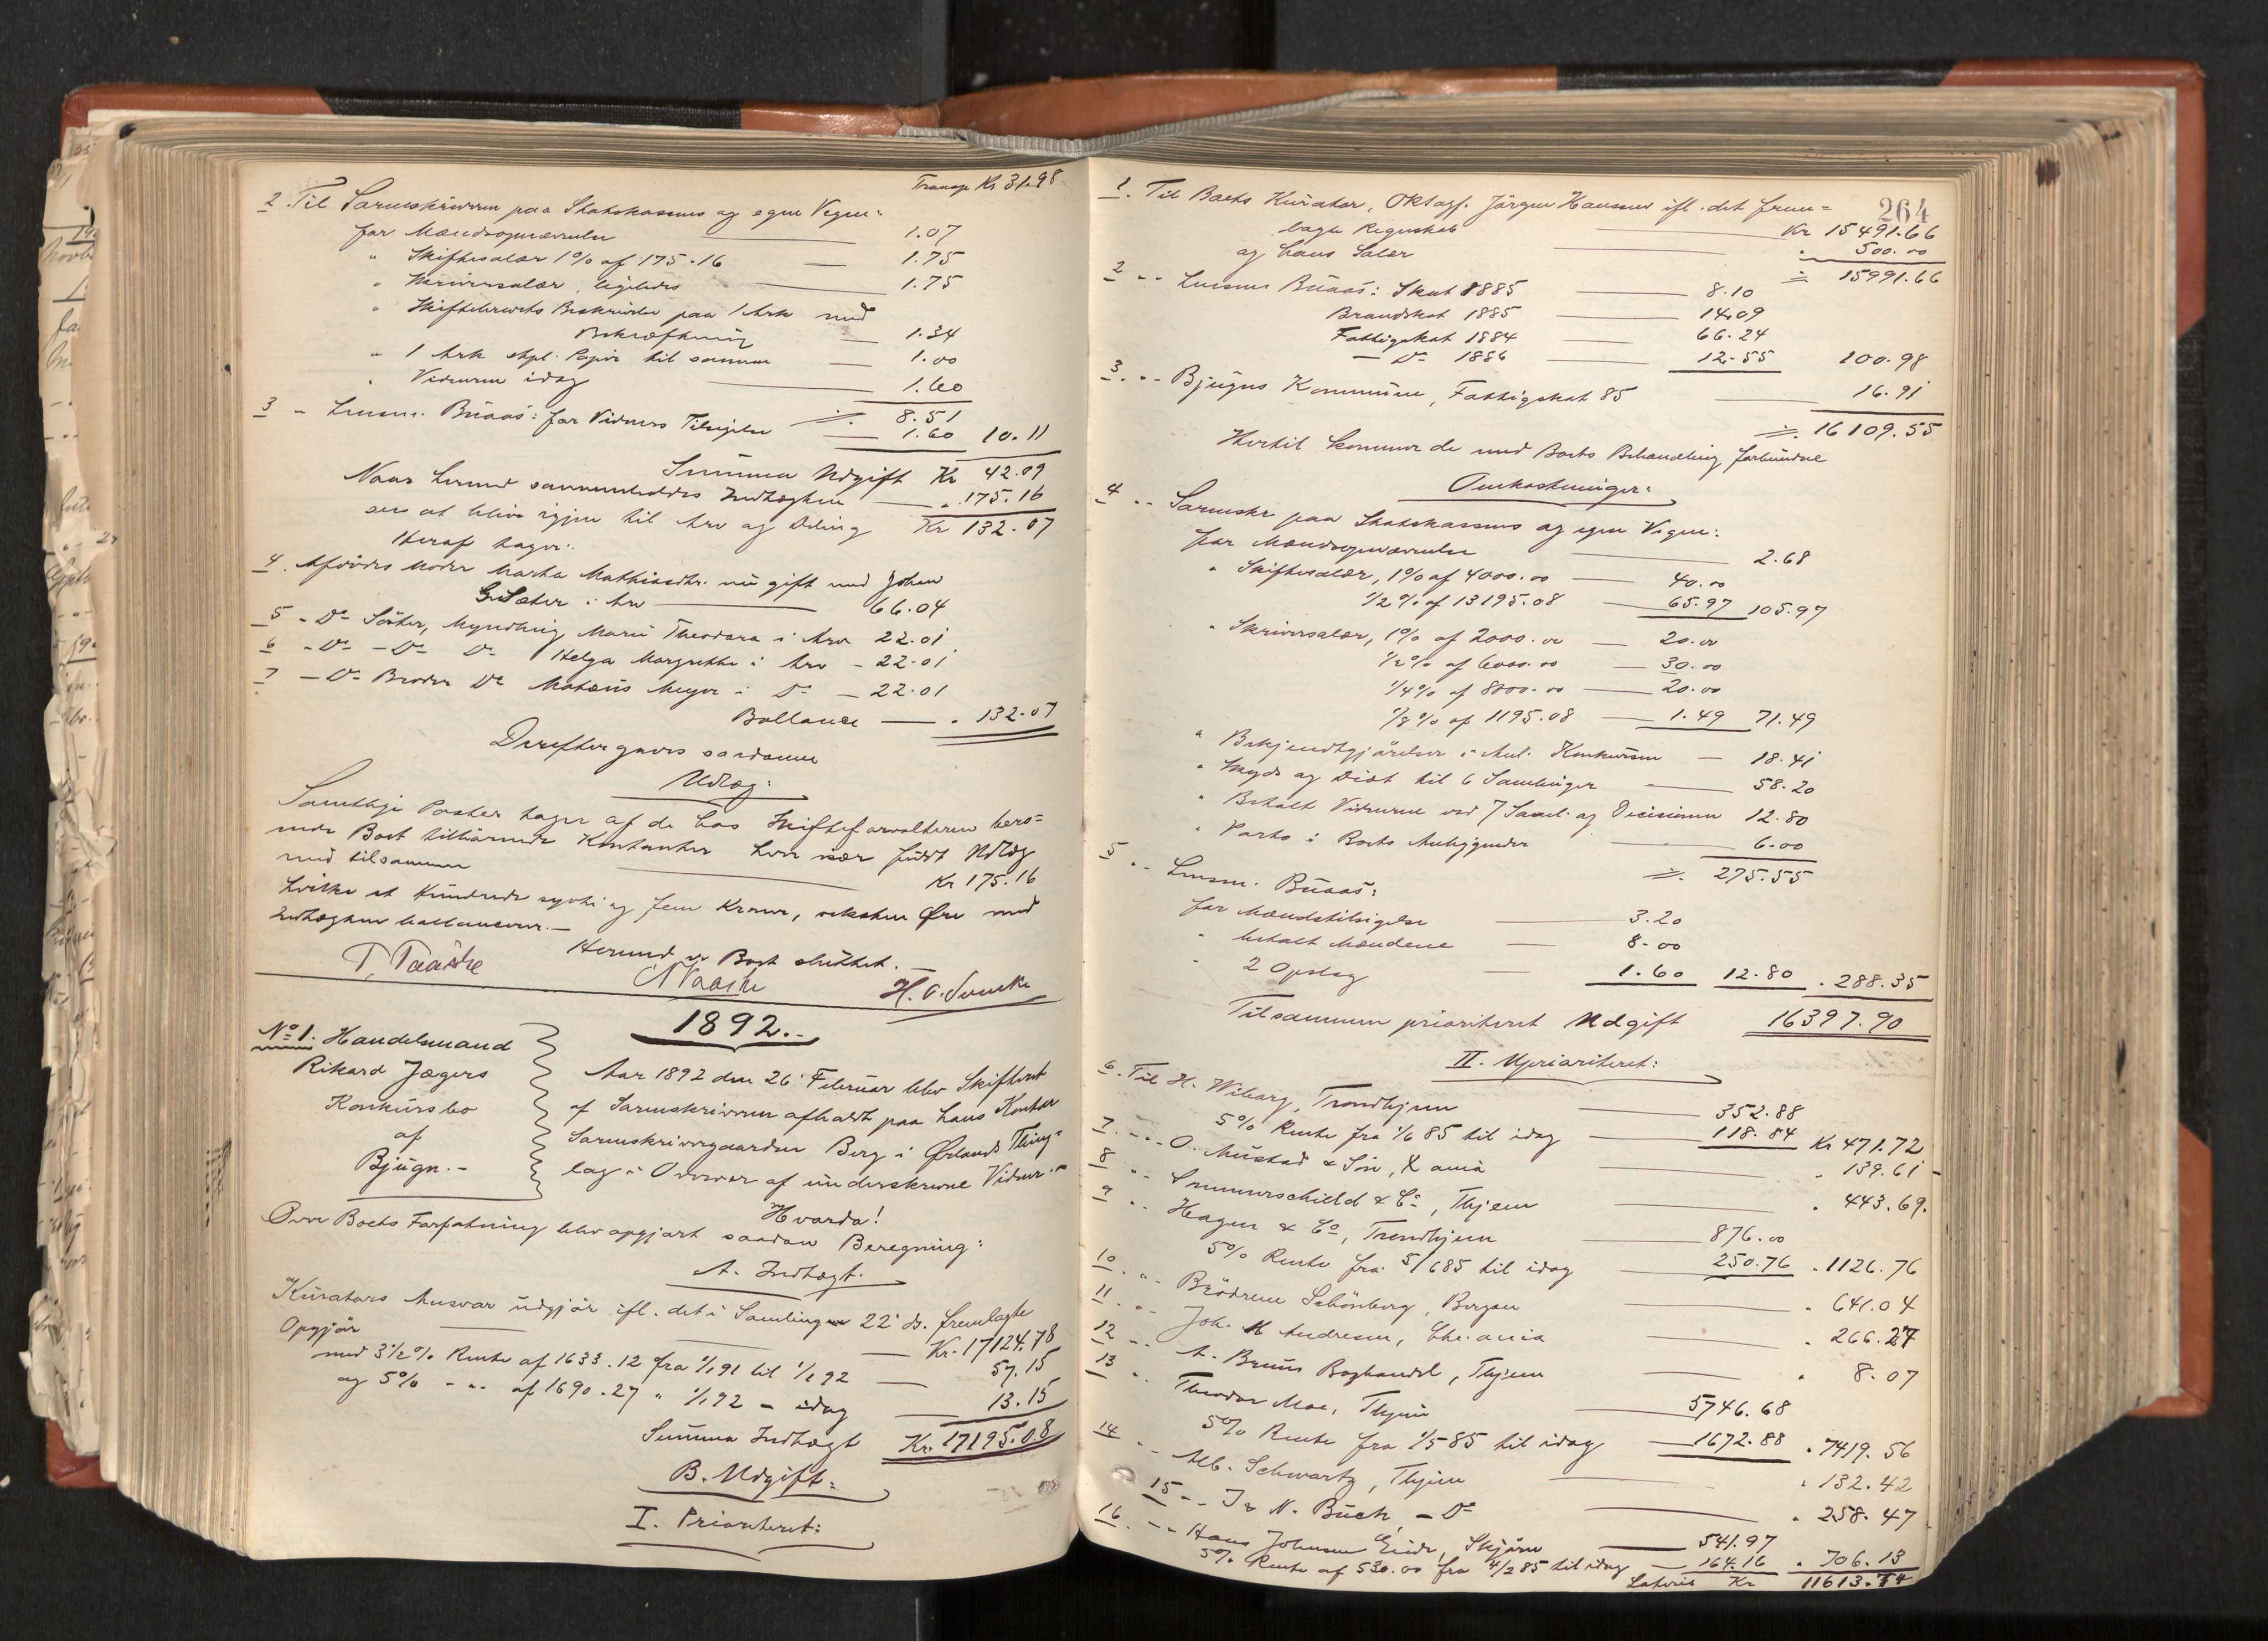 Transp Kr 31.98
2. Til Sorenskriveren paa Statskassens og egne Vegne:
for Mændsopnævnelse 1.07
" Skiftesalær 1% af 175.16 1.75
" Skriversalær, ligeledes 1.75
" Skiftebrevets Beskrivelse paa 1 Ark med
Bekræftning 1.34
" 1 Ark stpl. Papir til samme 1.00
" Vidnerne idag 1.60
÷ 8.51
3 " Lensm. Buaas: for Vidners Tilsigelse 1.60 10.11
Summa Udgift Kr 42.09
Naar hermed sammenholdes Indtægten " 175.16
sees at blive igjen til Arv og Deling Kr 132.07
Heraf tager:
4. Afdødes Moder Marta Mathiasdtr. nu gift med Johan
Sæter i Arv 66.04
5 " Do Søster, Myndling Marie Theodora i Arv 22.01
6 " Do - Do Do Helga Margrethe i Arv - 22.01
7 - Do Broder Do Matæus Meyer i Do - 22.01
Ballance " 132.07
Derefter gjøres saadanne
Udlæg:
Samtlige Poster tager af de hos Skifteforvalteren bero=
ende Boet tilhørende Kontanter hver især fuldt Udlæg
med tilsammen Kr 175.16
hvilke et Hundrede sytti og fem Kroner, seksten Øre med
Indtægten ballancerer.-
Hermed er Boet sluttet.
H. C. Svenske
1892.-
No 1. Handelsmand
Rikard Jægers
Konkursbo
af
Bjugn.-
Aar 1892 den 26' Februar blev Skifteret
af Sorenskriveren afholdt paa hans Kontor
Sorenskrivergaarden Berg i Ørlands Thing=
lag i Overvær af underskrevne Vidner.-
Hvorda!
Over Boets Forfatning blev opgjort saadan Beregning:
A. Indtægt.
Kurators Ansvar udgjør ifl. det i Samlingen 22' ds. fremlagte
Opgjør Kr. 17124.78
med 3 1/2% Rente af 1633.12 fra 1/1 91 til 1/1 92 57.15
og 5% " " af 1690.27 " 1/1 92 - idag 13.15
Summa Indtægt Kr. 17195.08
B. Udgift:
I. Prioriteret:
264
1. Til Boets Kurator, O Ksagf. Jørgen Hanssen ifl. det frem=
lagte Regnskab Kr 15491.66
og hans Salær " 500.00
÷ 15991.66
2 " - Lensm. Buaas: Skat 1885 8.10
Brandskat 1885 14.09
Fattigskat 1884 66.24
- Do 1886 12.55 100.98
3. " - Bjugns Kommune, Fattigskat 85 16.91
÷ 16109.55
Hertil kommer de med Boets Behandling forbundne
Omkostninger:
4 " - Sorenskr paa Statskassens og egne Vegne:
for Mændsopnævnelse 2.68
" Skiftesalær, 1% af 4000.00 40.00
1/2% af 13195.08 65.97 105.97
" Skriversalær, 1% af 2000.00 20.00
1/2% af 6000.00 30.00
1/4% af 8000.00 20.00
1/8% af 1195.08 1.49 71.49
" Bekjendtgjørelser i Anl. Konkursen 18.41
" Skyds og Diæt til 6 Samlinger 58.20
" Betalt Vidnerne ved 7 Saml. og Decisionen 12.80
" Porto i Boets Anliggender 6.00
÷ 275.55
5 " - Lensm. Buaas:
for Mændstilsigelse 3.20
" betalt Mændene 8.00
" 2 Opslag 1.60 12.80 " 288.35
Tilsammen prioriteret Udgift 16397.90
II. Uprioriteret:
6. Til H. Wiborg, Trondhjem 352.88
5% Rente fra 1/6 85 til idag 118.84 Kr 471.72
7. " - O. Mustad & Søn, Xania " 139.61
8 " - Lmmerschield & Co, Thjem " 443.69.
9 " - Hagen & Co, Trondhjem 876.00
5% Rente fra 5/6 85 til idag 250.76 " 1126.76
10 " - Brødrene Schönberg, Bergen " 641.04
11 " - Joh. H Andresen, Chr.ania " 266.27
12 " - A. Bruns Boghandel, Thjem " 8.07
13 " - Theodor Moe, Thjem 5746.68
5% Rente fra 1/5 85 til idag 1672.88 " 7419.56
14 " - Alb. Schwartz, Thjem " 132.42
15 " - I & N. Buch - Do " 258.47
16 " - Hans Johnsen Eide, Skjørn 541.97
5% Rente af 530.00 fra 4/2 85 til idag 164.16 " 706.13
Lateris Kr 11613.74